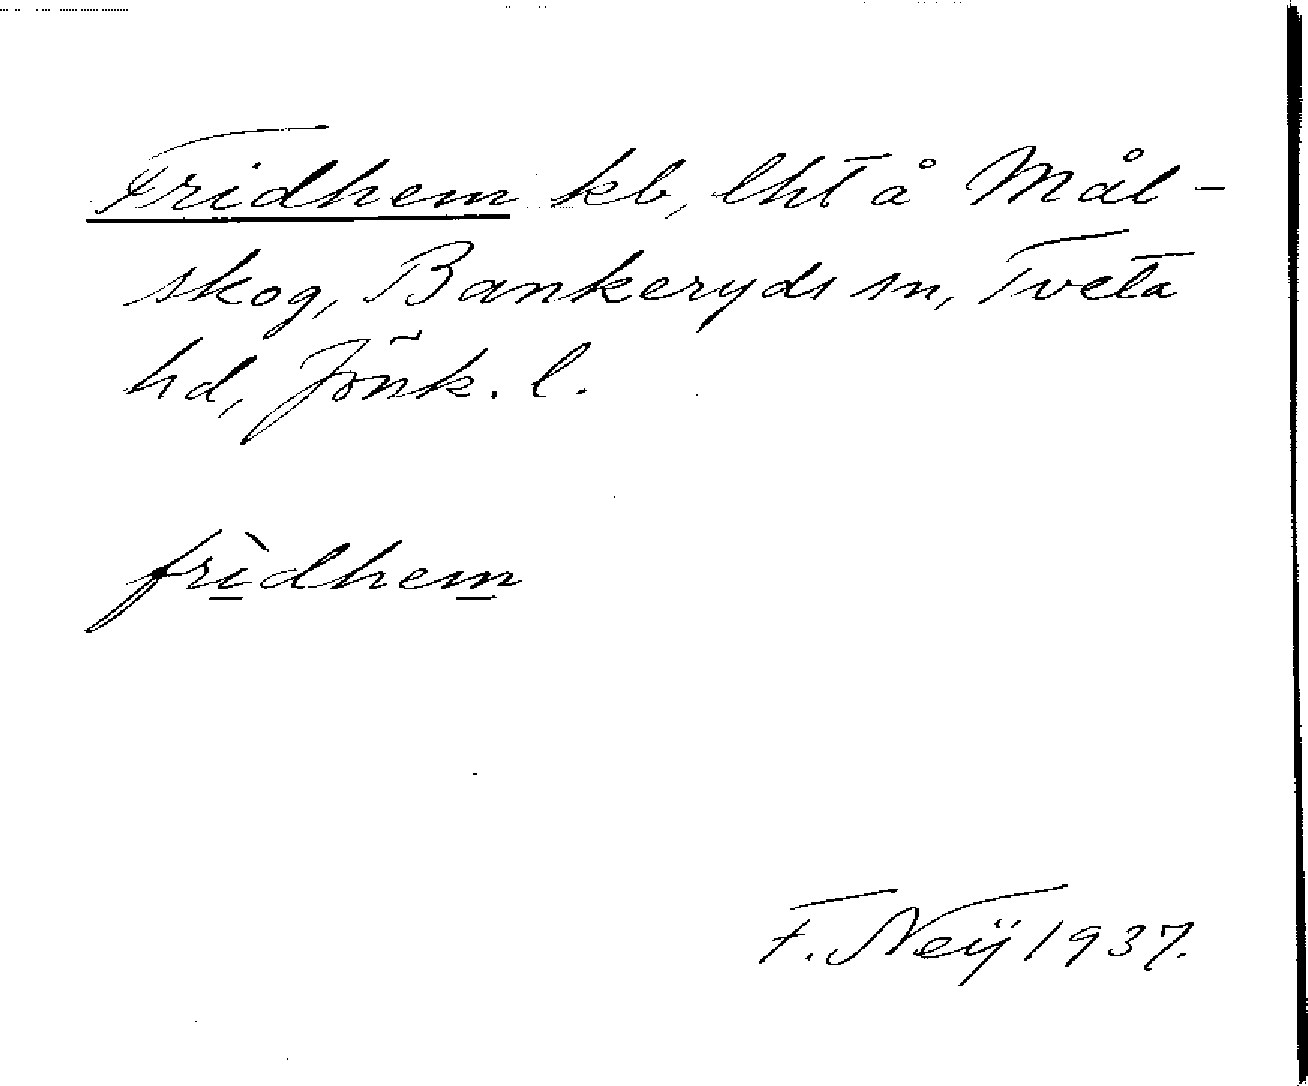 Fridhem kb, lht å Mål-
skog, Bankeryds sn, Tveta
hd, Jönk. l.
frìdhem
F. Neÿ 1937.